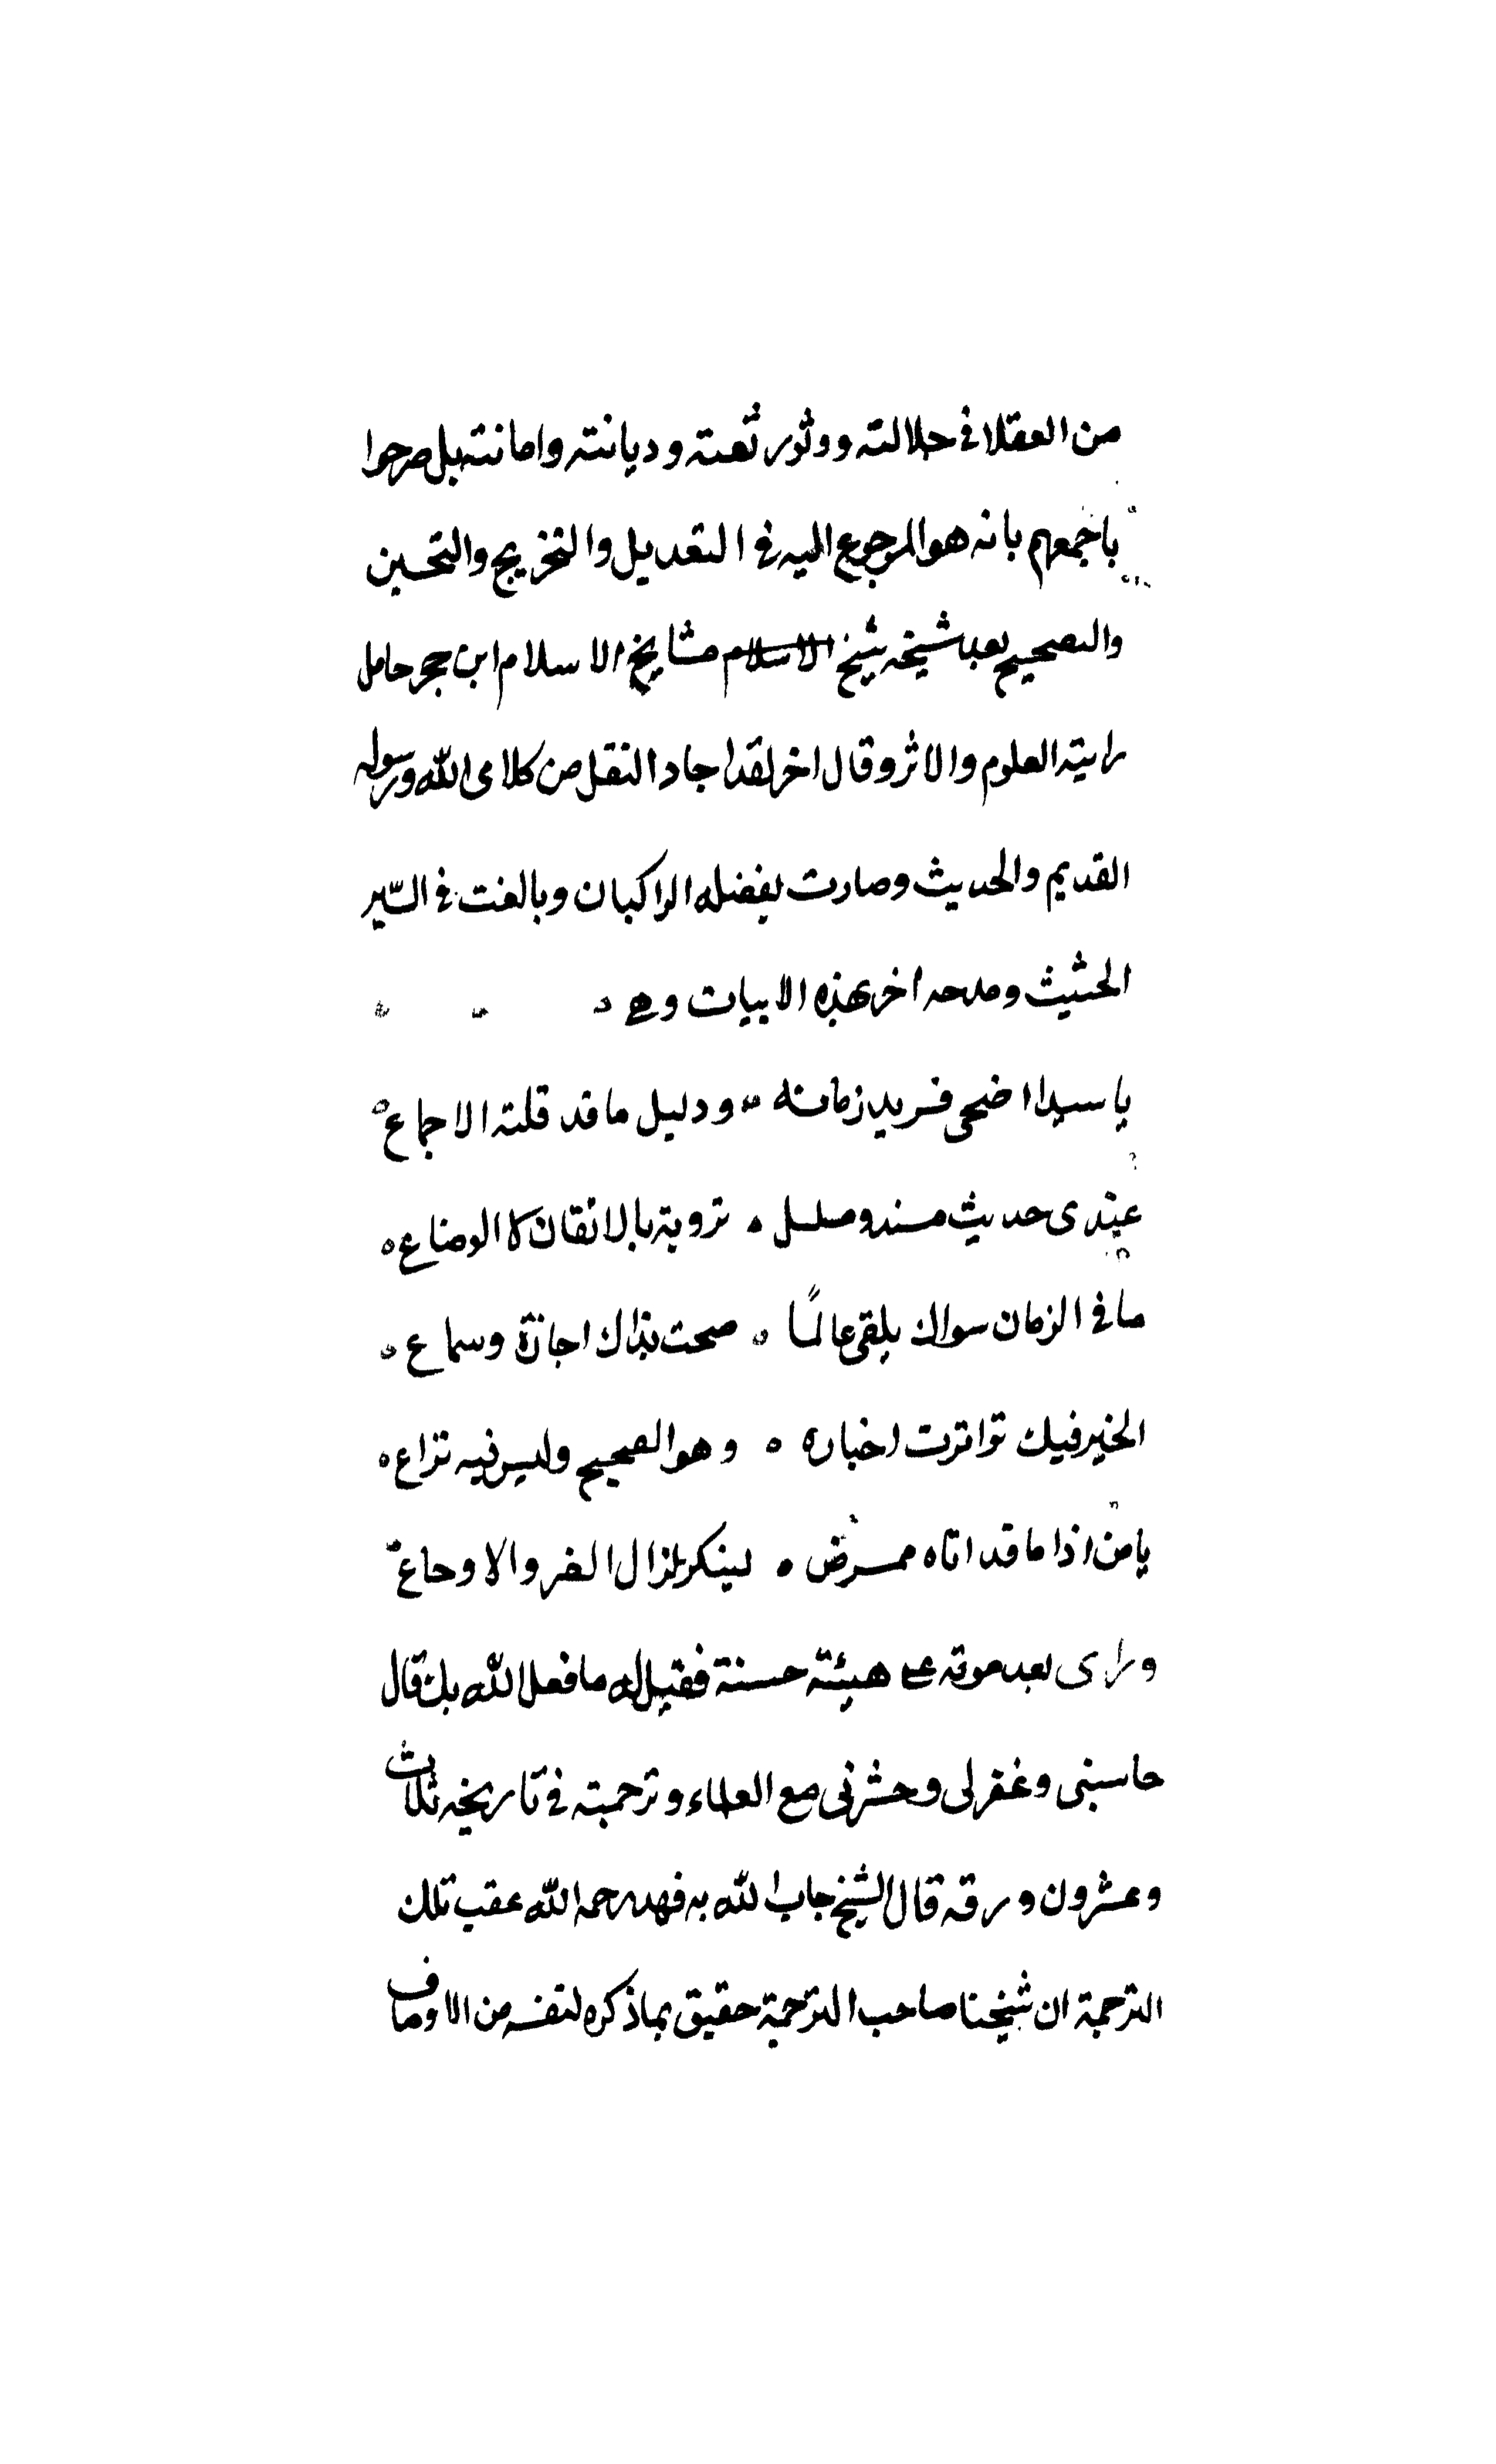 من العقلا في جلالته ووثور ثقته وديانته وامانته بل صرحوا
باجمعهم بانه هو المرجوع اليه في التعديل والتخريج والتحسين
والتصحيح بعد شيخه شيخ الاسلام مشايخ الاسلام ابن حجر حامل
راية العلوم والاثر وقال اخر لقد اجاد النقل من كلامي الله ورسوله
القديم والحديث وصارت بفضله الراكبان وبالغت في السّير
الحثيث ومدحه اخر بهذه الابيات وهي
يا سيدا اضحى فريد زمانه ودليل ما قد قلته الاجماع
عندي حديث مسند ومسلسل ترويه بالاتقان لا الوضاع
ما في الزمان سواك يلقى عالمًا صحت بذاك اجازة وسماع
الخير فيك تواترت اخباره وهو الصحيح وليس فيه نزاع
يا من اذا ما قد اتاه ممرض لينكر الضر والاوجاع
وراى بعد موته على هيئة حسنة فقيل له ما فعل الله بك قال
حاسبني وغفر لي وحشرني مع العلماء وترجمته في تاريخه ثلاث
وعشرون ورقة قال الشيخ جاب الله به فهد رحمه الله عقب تلك
الترجمة ان شيخنا صاحب الترجمة حقيق بما ذكره لنفسه من الاوصاف